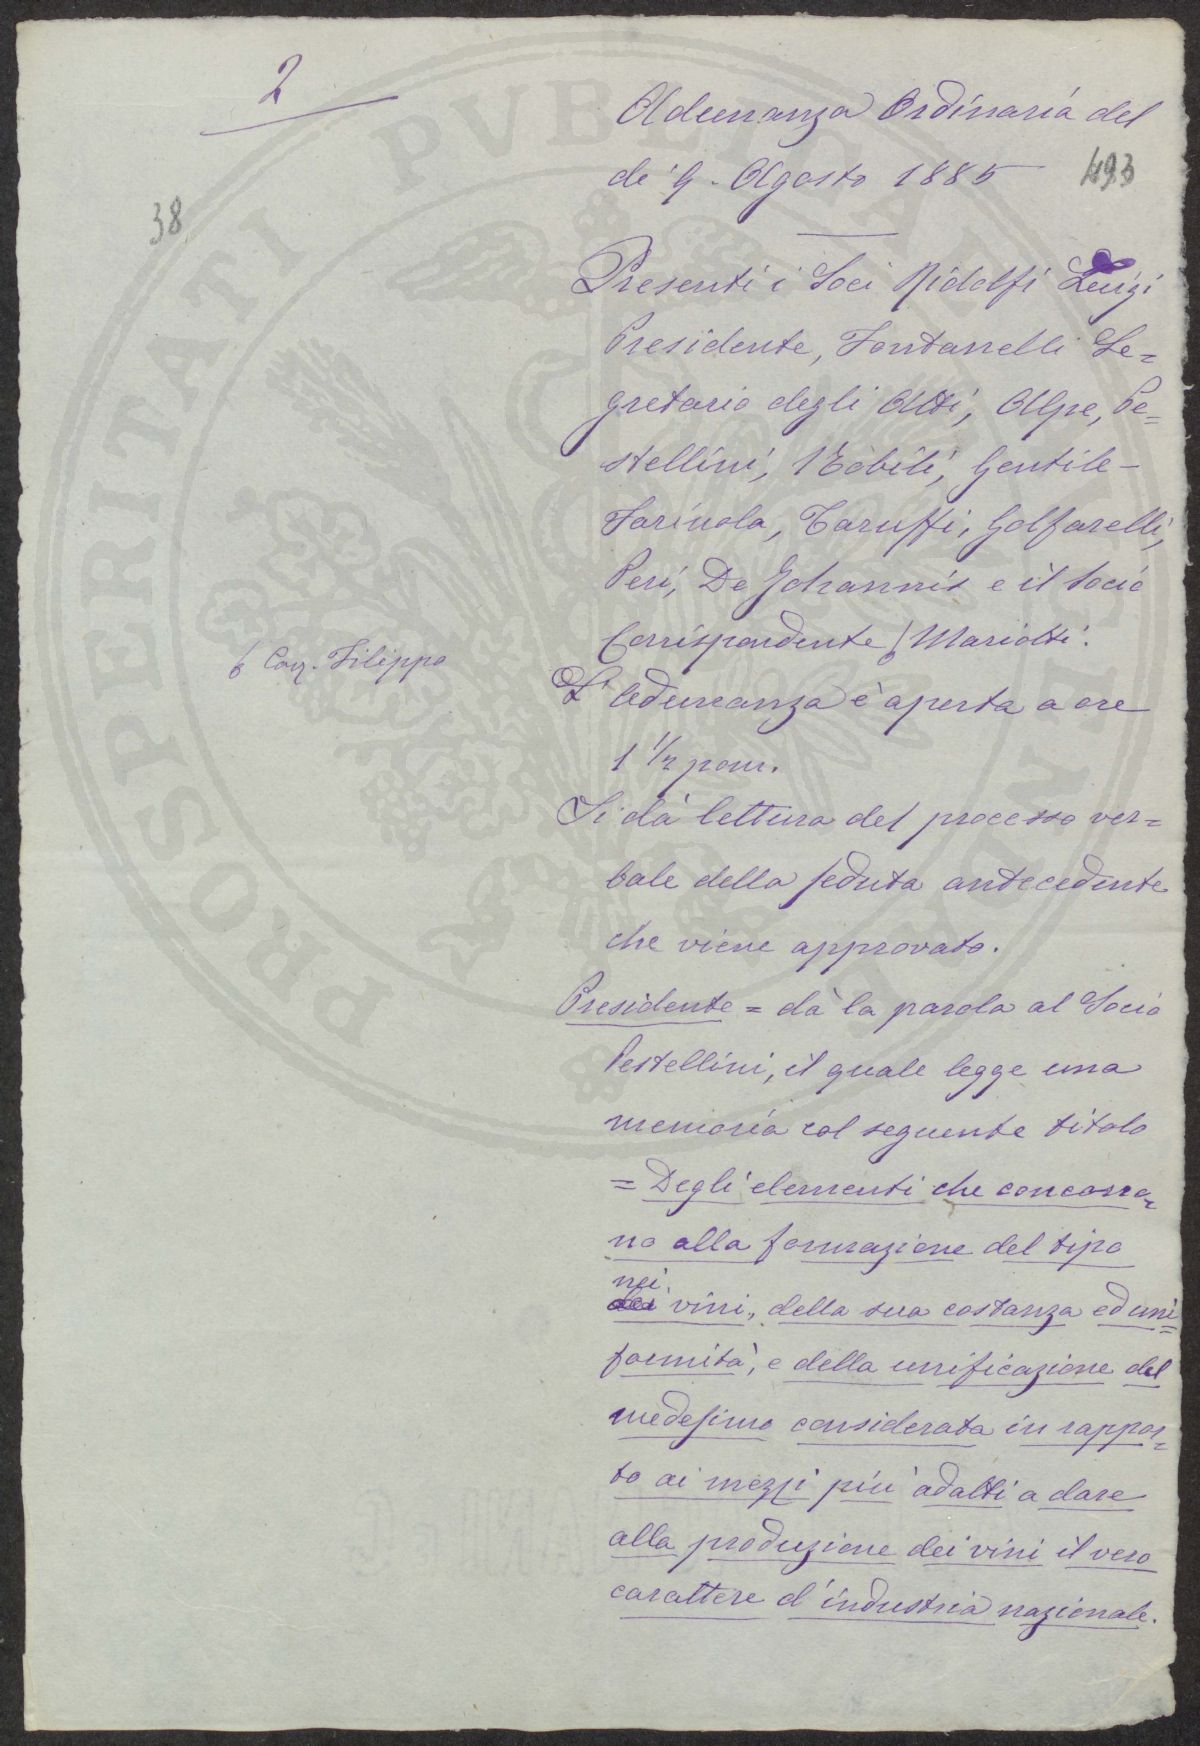 2
Adunanza Ordinaria del
dì 9. Agosto 1885
493
38
Presenti i Soci Ridolfi Luigi
Presidente, Fontanelli Se=
gretario degli Atti, Alpe, Pe=
stellini, Nobili, Gentile-
Farinola, Taruffi, Golfarelli,
Peri, De Johannis e il Socio
Corrispondente Mariotti.
Filippo
L'adunanza è aperta a ore
1 1/2 pom.
Si dà lettura del processo ver=
bale della seduta antecedente
che viene approvato.
Presidente = dà la parola al Socio
Pestellini, il quale legge una
memoria col seguente titolo
= Degli elementi che concorro=
no alla formazione del tipo
nei
dei vini, della sua costanza ed uni=
formità, e della unificazione del
medesimo considerata in rappor=
to ai mezzi più adatti a dare
alla produzione dei vini il vero
carattere d'industria nazionale.
PROSPERITATI PVBLICAE